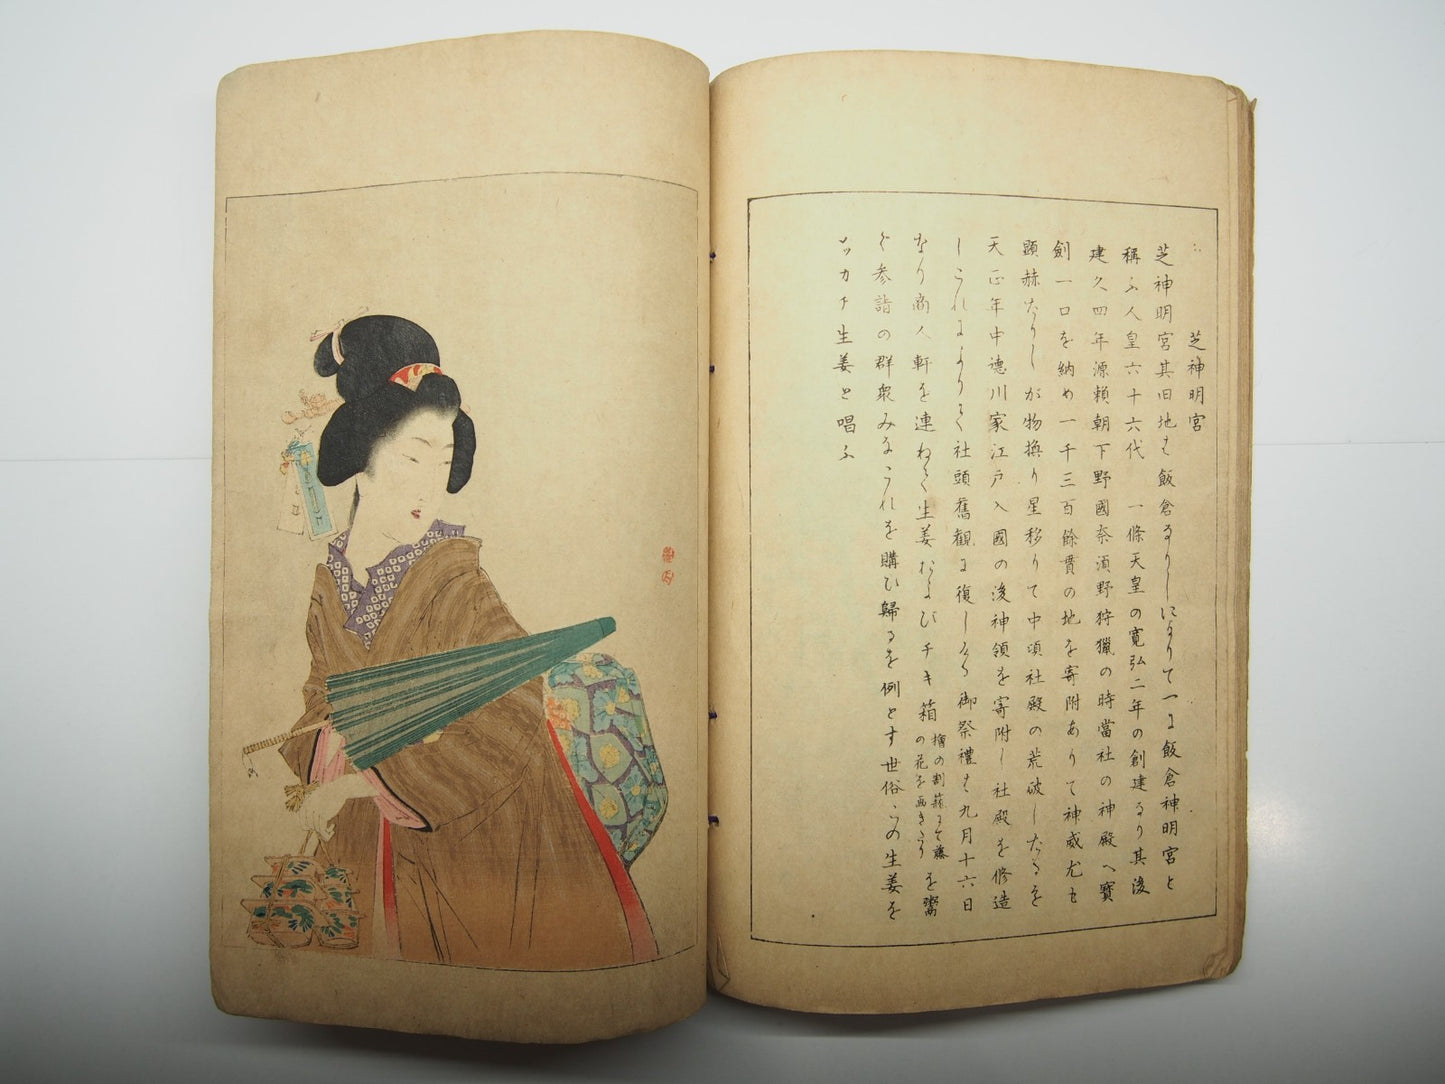 芝神明宮
芝神明宮其旧地は飯倉なりしによりて一に飯倉神明宮と
稱ふ人皇六十六代一條天皇の寛弘二年の創建なり其後
建久四年源頼朝下野國奈須野狩獵の時當社の神殿へ寳
劍一口を納め一千三百餘貫の地を寄附ありて神威尤も
顕赫たりしが物換り星移りて中頃社殿の荒破したるを
天正年中德川家江戸入國の後神領を寄附し社殿を修造
しこれによりて社頭舊觀に復しぬ御祭禮は九月十六日
なり商人軒を連ねて生姜およびチキ箱檜の割籠にて藤の花を画きたりを鬻
ぐ参詣の群衆みなこれを購ひ歸るを例とす世俗この生姜を
ッカチ生姜と唱ふ